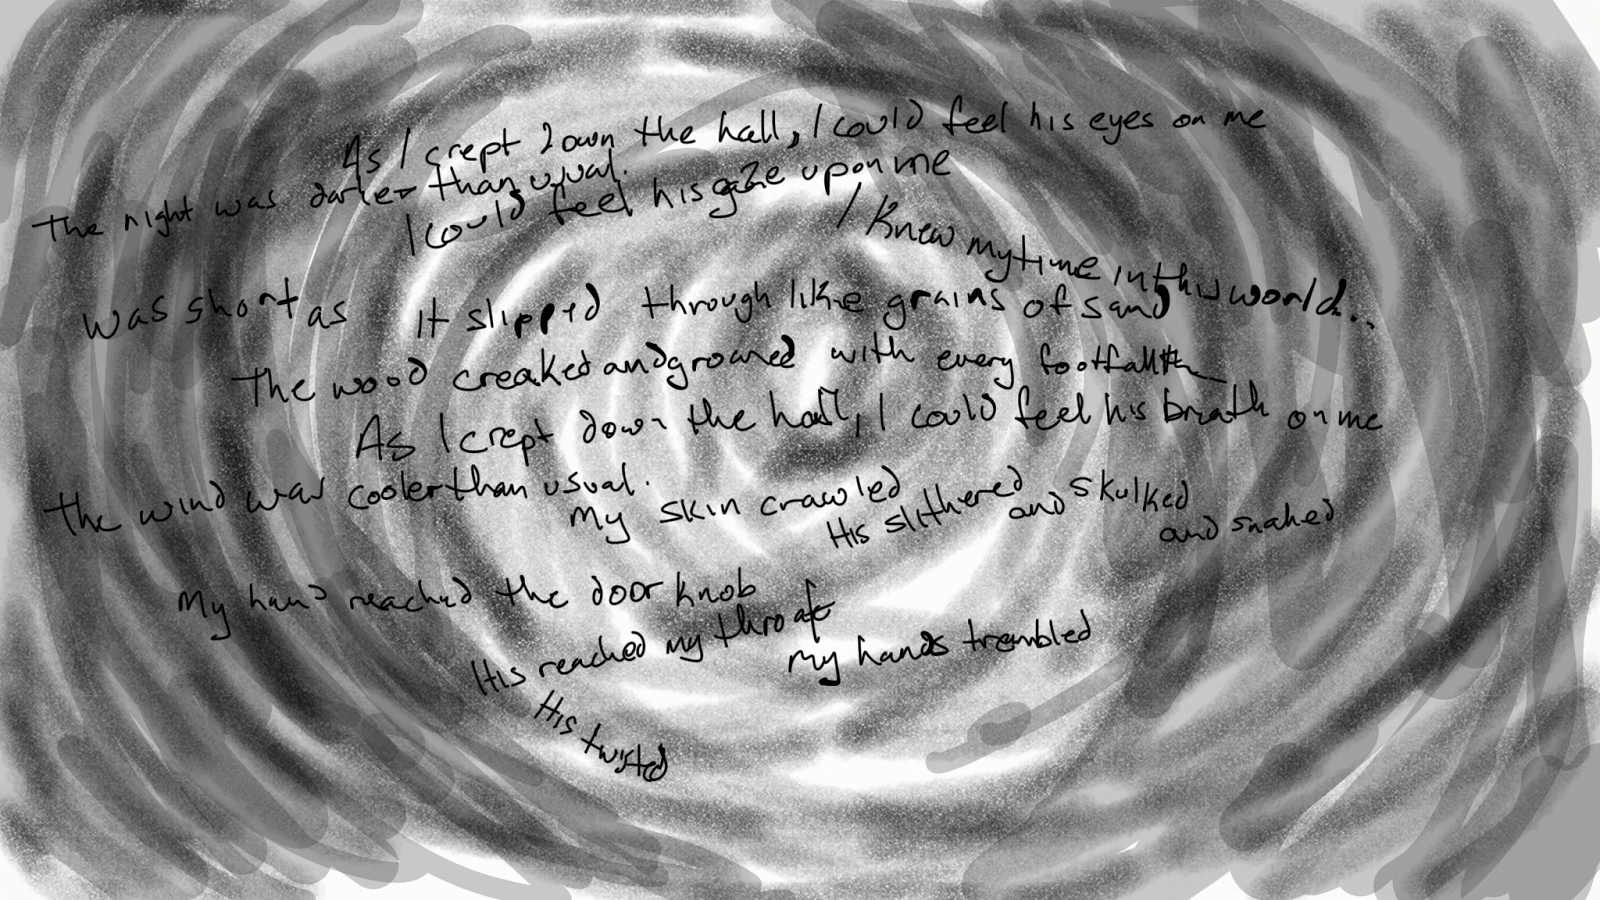 As I crept down the hall, I could feel his eyes on me
The night was darker than usual.
I could feel his gaze upon me
I knew my time in this world...
was short as it slipped through like grains of sand
The wood creaked and groaned with every footfall
As I crept down the hall, I could feel his breath on me
The wind was cooler than usual.
My skin crawled
His slithered and skulked
and snaked
My hand reached the door knob
His reached my throat
My hands trembled
His twisted